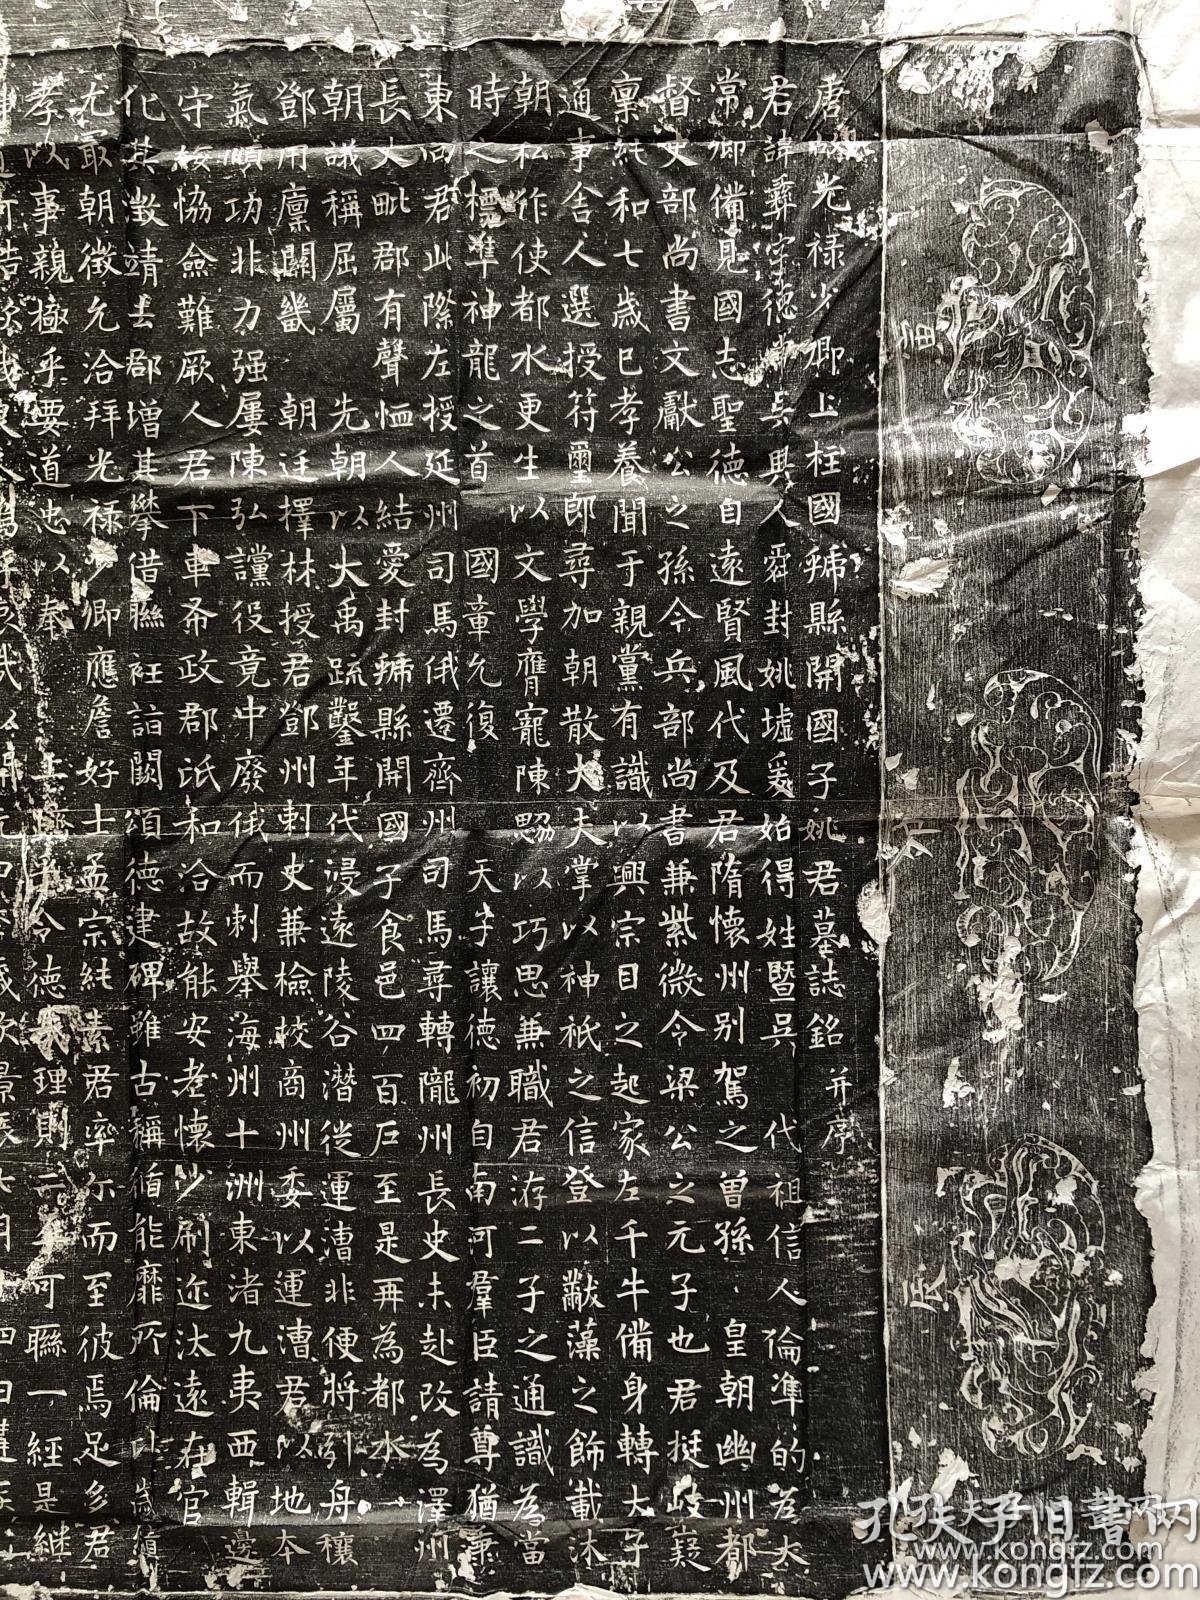 唐故光祿少卿上柱國虢縣開國子姚君墓誌銘 并序
君諱彝字德常吳興人舜封姚墟爰始得姓暨吳 代祖信人倫準的為太
常卿備見國志聖德自遠賢風代及君隋懷州別駕之曾孫皇朝幽州都
督吏部尚書文獻公之孫今兵部尚書兼紫微令梁公之元子也君挺岐嶷
稟純和七歲已孝養聞于親黨有識以興宗目之起家左千牛備身轉太子
通事舍人選授符璽郎尋加朝散大夫掌以神祇之信登以黻藻之飾載沐
朝私作使都水更生以文學膺寵陳勰以巧思兼職君游二子之通識為當
時之標準神龍之首 國章允復 天子讓德初自南河羣臣請尊猶兼
東向君此際左授延州司馬俄遷齊州司馬尋轉隴州長史未赴改為澤州
長史毗郡有聲恤人結愛封虢縣開國子食邑四百户至是再為都水
朝議稱屈屬 先朝以大禹疏鑿年代浸遠陵谷潛從運漕非便將引舟穰
鄧用廩關畿 朝廷擇林授君鄧州刺史兼檢校商州委以運漕君以地本
氣 功非力强屢陳弘讜役竟中廢俄而刺舉海州十洲東渚九夷西輯邊
守綏協僉難厥人君下車布政郡氓和洽故能安老懷少刷近汰遠在官
化其澂靖去郡增其攀借聯 詣闕頌德建碑雖古稱循能靡所倫比歲
尤最朝徵允洽拜光祿少卿應詹好士孟宗純素君率尔而至彼焉足多君
孝以事親極乎要道忠以奉 令德 理則 可聯一經是継
申
酉
辰
孔夫子旧书网
www.kongfz.com